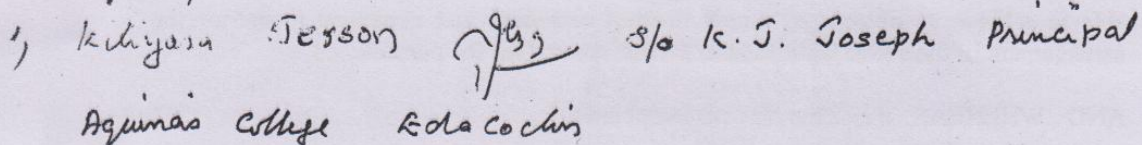 1, Kuriyasu Jerson s/o K. J. Joseph Principal
Aquinas College Edacochin